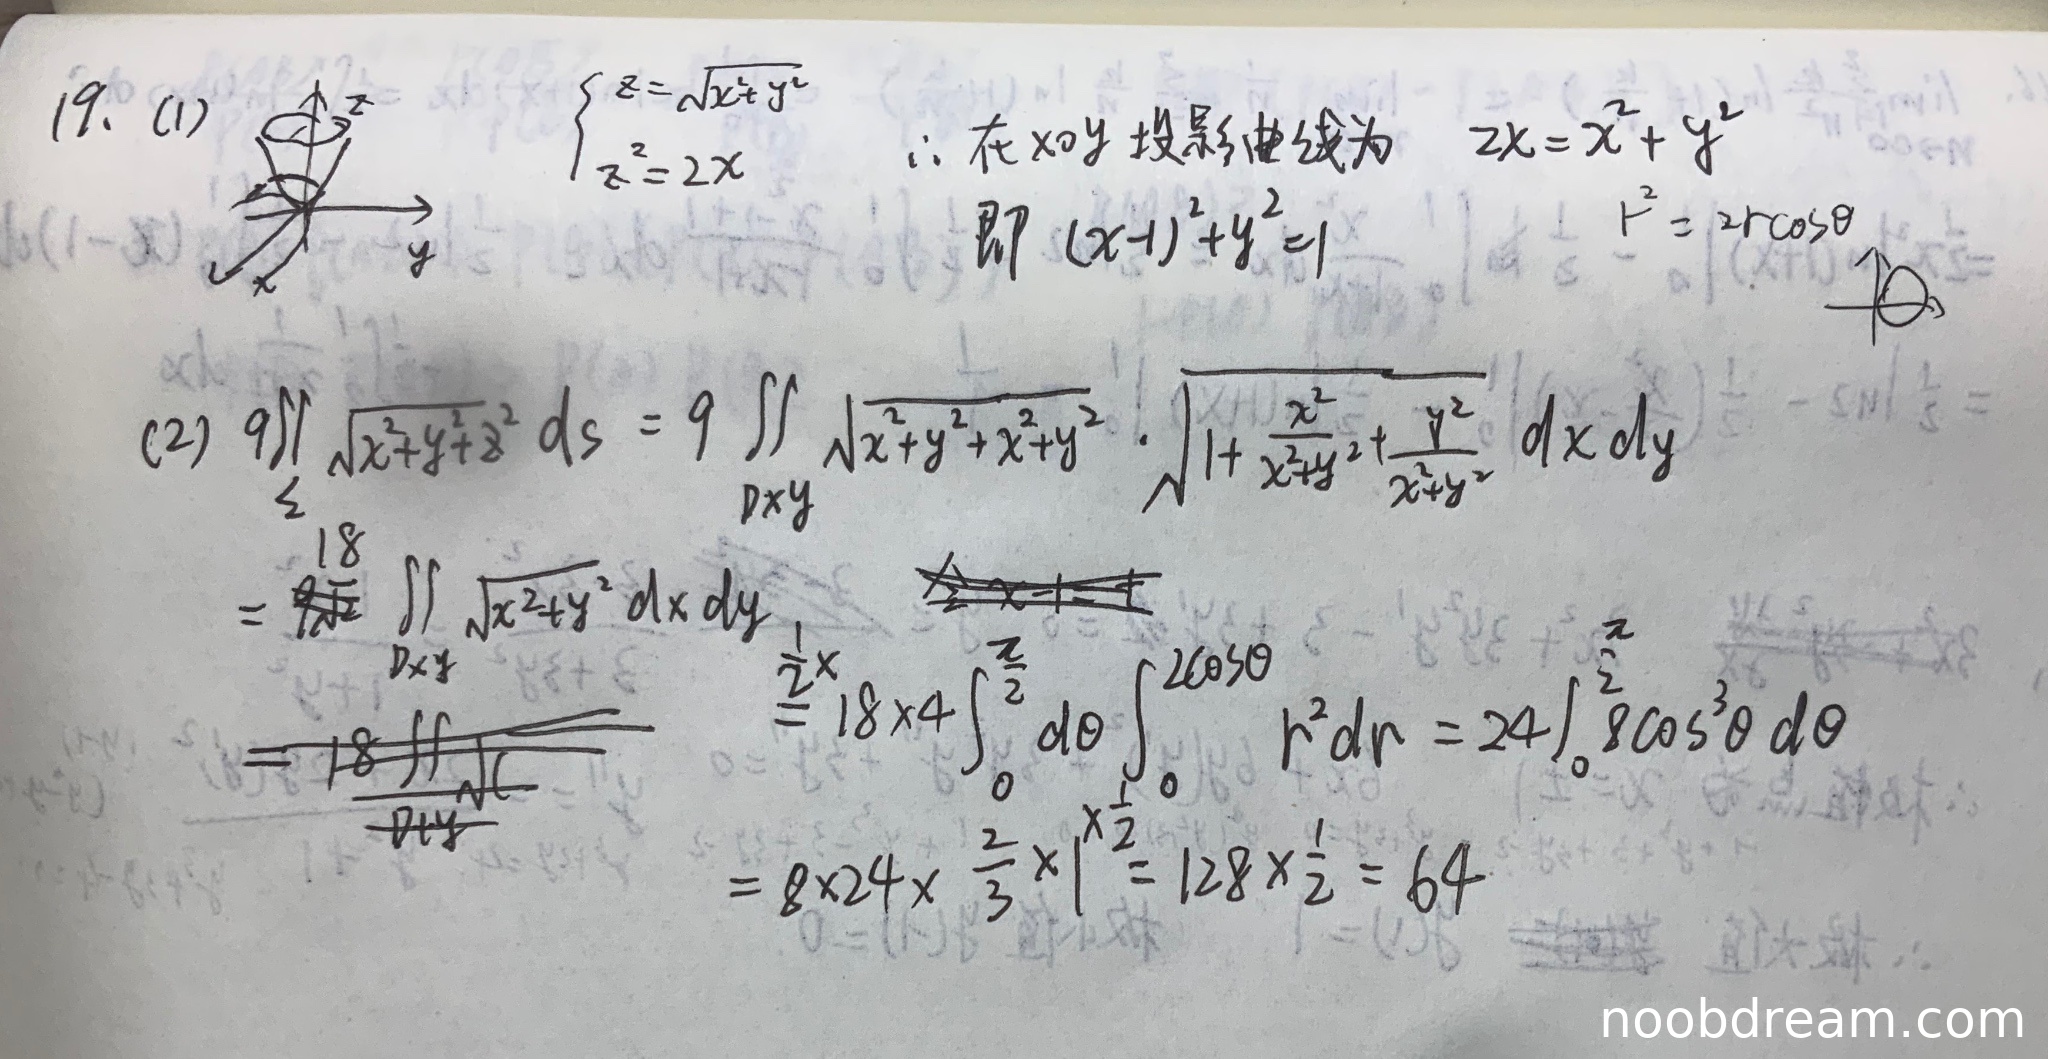 19. (1) z y x { z=√(x²+y²) z²=2x ∴ 在xoy投影曲线为 2x=x²+y²
即 (x-1)²+y²=1 r²=2rcosθ
(2) 9∬_Σ √(x²+y²+z²) ds = 9∬_Dxy √(x²+y²+x²+y²) · √(1+x²/(x²+y²)+y²/(x²+y²)) dxdy
= 18 ∬_Dxy √(x²+y²) dxdy
= 1/2 × 18×4 ∫_0^(π/2) dθ ∫_0^(2cosθ) r²dr = 24∫_0^(π/2) 8cos³θ dθ
= 8×24× 2/3 ×1 × 1/2 = 128×1/2 = 64
noobdream.com